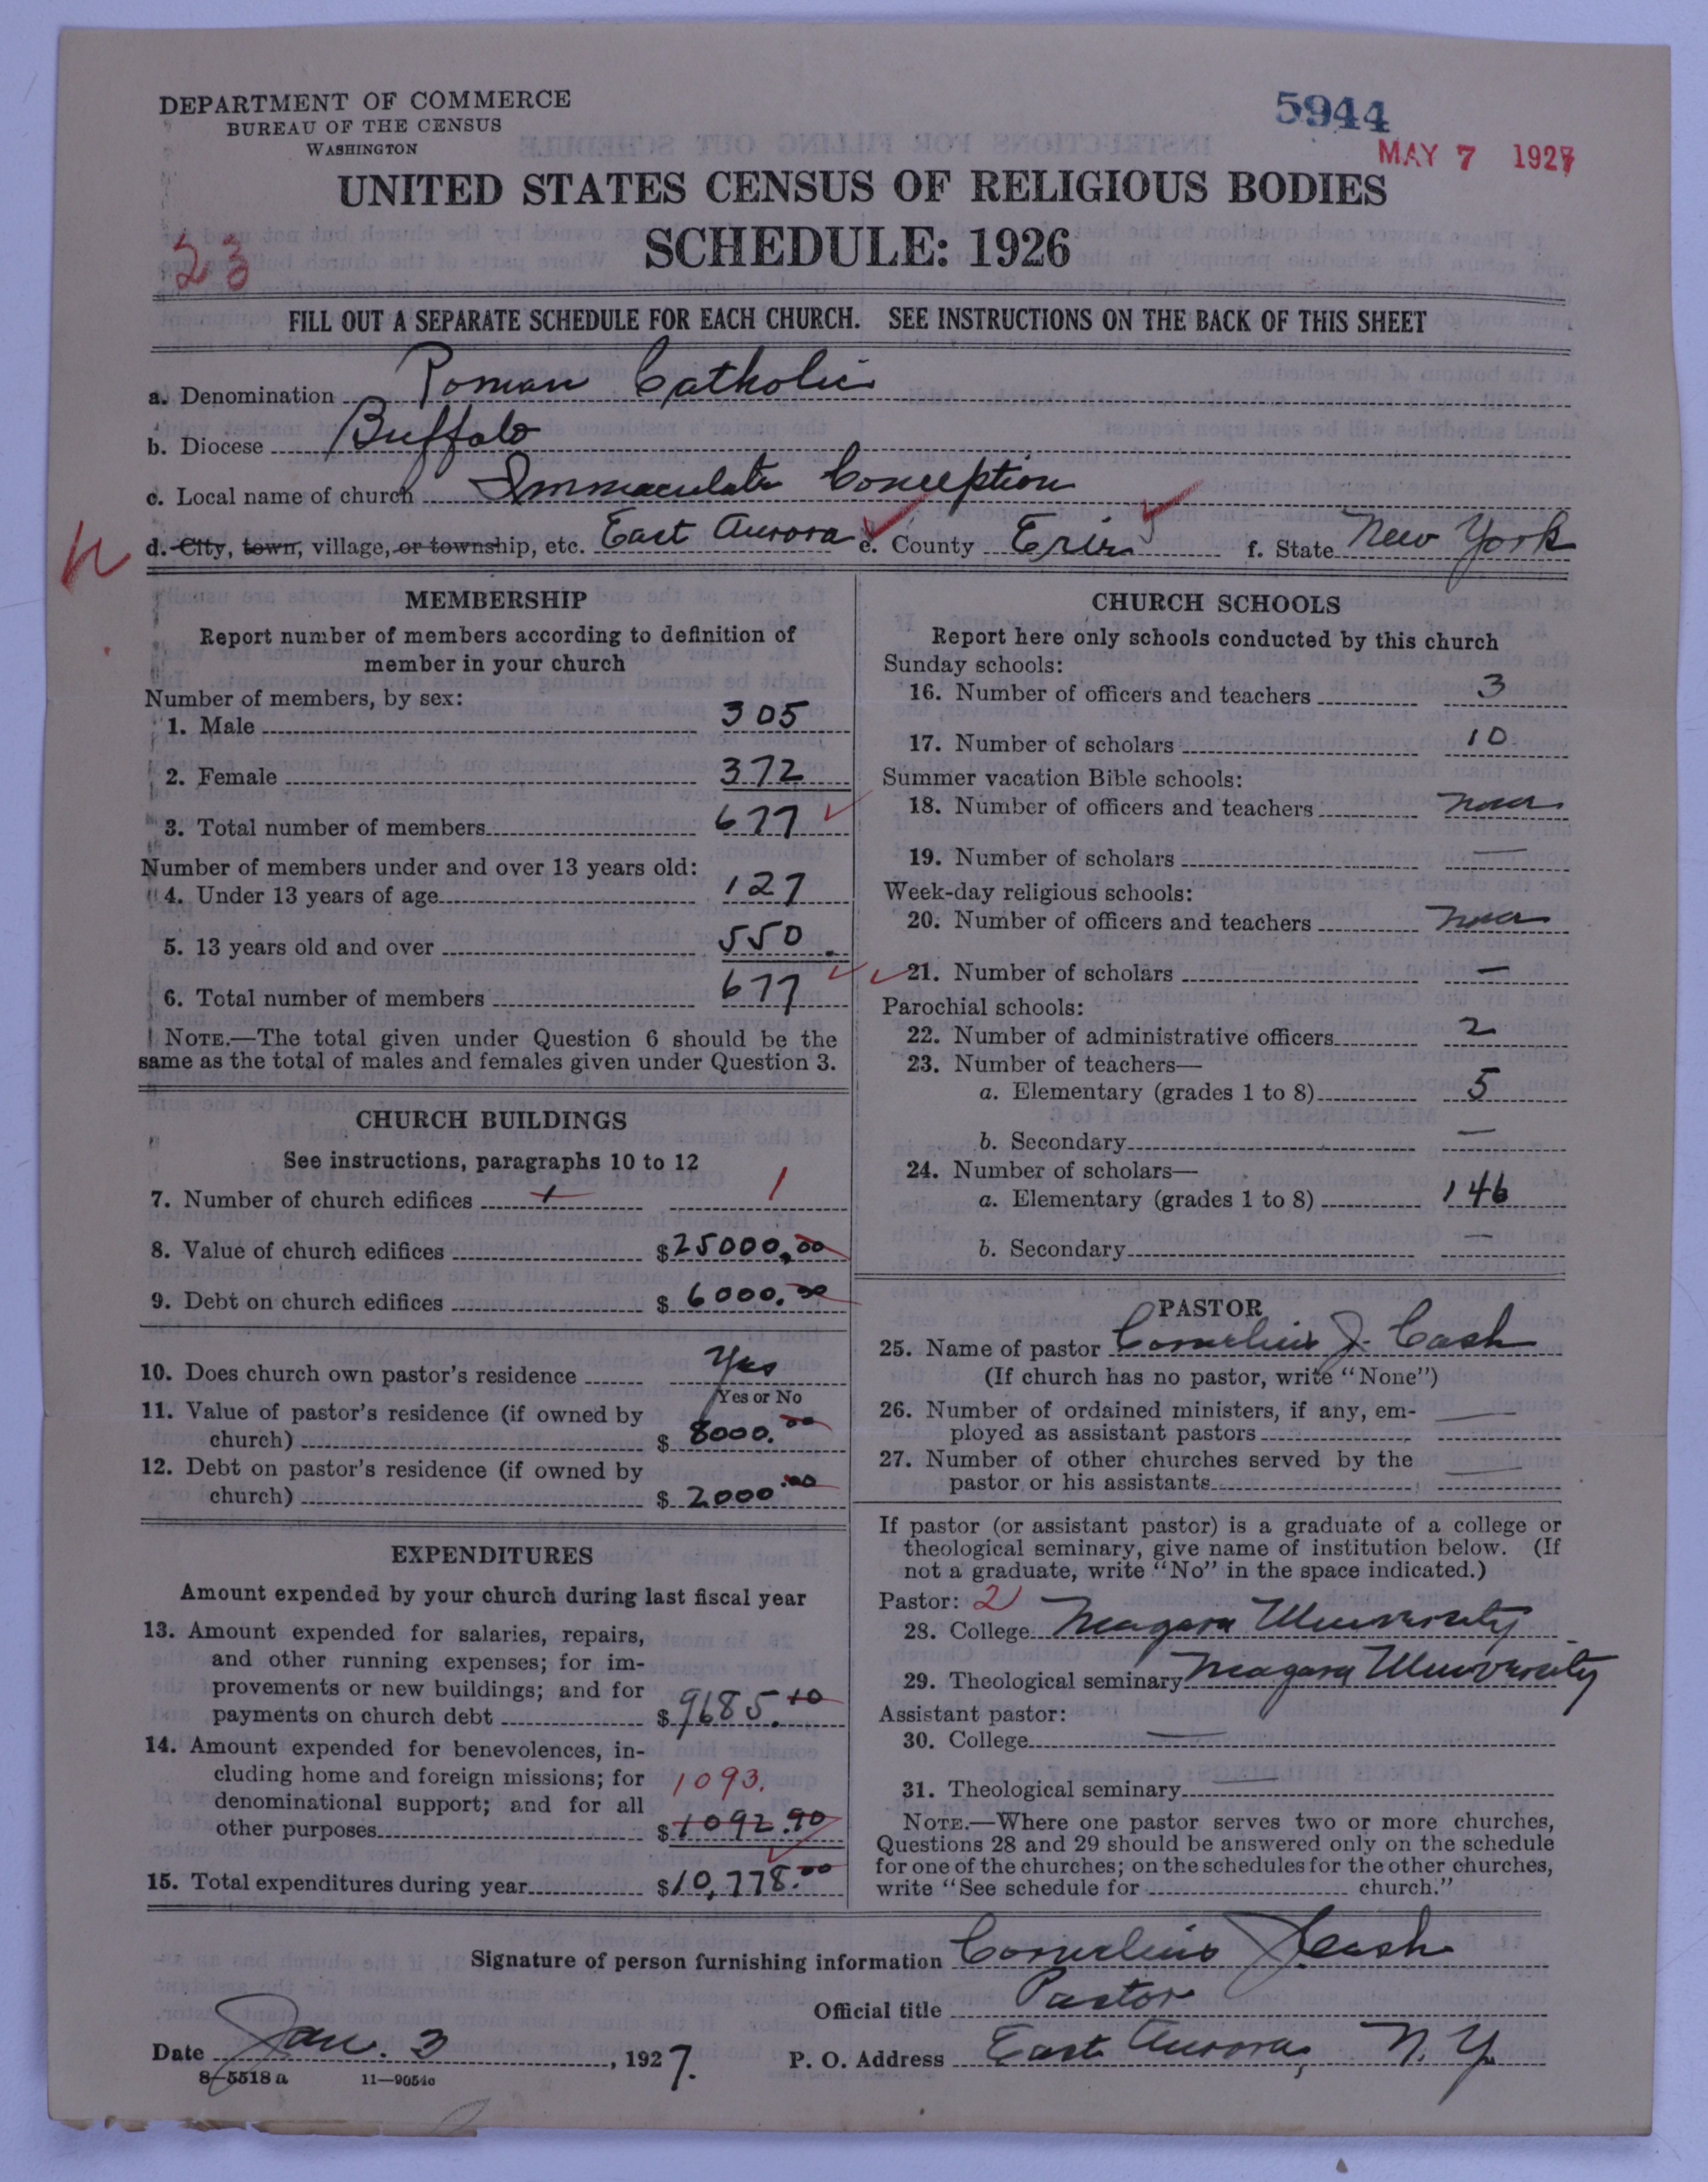 DEPARTMENT OF COMMERCE
BUREAU OF THE CENSUS
WASHINGTON
5944
MAY 7 1927
UNITED STATES CENSUS OF RELIGIOUS BODIES
SCHEDULE: 1926
23
FILL OUT A SEPARATE SCHEDULE FOR EACH CHURCH. SEE INSTRUCTIONS ON THE BACK OF THIS SHEET
a. Denomination Roman Catholic
b. Diocese Buffalo
c. Local name of church Immaculate Conception
d. City, town, village, or township, etc. East Aurora e. County Erie f. State New York
MEMBERSHIP
Report number of members according to definition of
member in your church
Number of members, by sex:
1. Male 305
2. Female 372
3. Total number of members 677
Number of members under and over 13 years old:
4. Under 13 years of age 127
5. 13 years old and over 550
6. Total number of members 677
NOTE.—The total given under Question 6 should be the
same as the total of males and females given under Question 3.
CHURCH BUILDINGS
See instructions, paragraphs 10 to 12
7. Number of church edifices 1 1
8. Value of church edifices $25000.00
9. Debt on church edifices $6000.00
10. Does church own pastor's residence Yes
Yes or No
11. Value of pastor's residence (if owned by
church) $8000.00
12. Debt on pastor's residence (if owned by
church) $2000.00
EXPENDITURES
Amount expended by your church during last fiscal year
13. Amount expended for salaries, repairs,
and other running expenses; for im-
provements or new buildings; and for
payments on church debt $9685.10
14. Amount expended for benevolences, in-
cluding home and foreign missions; for 1093.
denominational support; and for all
other purposes $1092.90
15. Total expenditures during year $10,778.00
CHURCH SCHOOLS
Report here only schools conducted by this church
Sunday schools:
16. Number of officers and teachers 3
17. Number of scholars 10
Summer vacation Bible schools:
18. Number of officers and teachers none
19. Number of scholars —
Week-day religious schools:
20. Number of officers and teachers none
21. Number of scholars —
Parochial schools:
22. Number of administrative officers 2
23. Number of teachers—
a. Elementary (grades 1 to 8) 5
b. Secondary —
24. Number of scholars—
a. Elementary (grades 1 to 8) 146
b. Secondary —
PASTOR
25. Name of pastor Cornelius J. Cash
(If church has no pastor, write "None")
26. Number of ordained ministers, if any, em-
ployed as assistant pastors —
27. Number of other churches served by the
pastor or his assistants —
If pastor (or assistant pastor) is a graduate of a college or
theological seminary, give name of institution below. (If
not a graduate, write "No" in the space indicated.)
Pastor: 2
28. College Niagara University
29. Theological seminary Niagara University
Assistant pastor:
30. College —
31. Theological seminary —
NOTE.—Where one pastor serves two or more churches,
Questions 28 and 29 should be answered only on the schedule
for one of the churches; on the schedules for the other churches,
write "See schedule for church."
Signature of person furnishing information Cornelius J. Cash
Official title Pastor
Date Jan. 3, 1927. P. O. Address East Aurora, N. Y.
8-5518 a 11—9054c